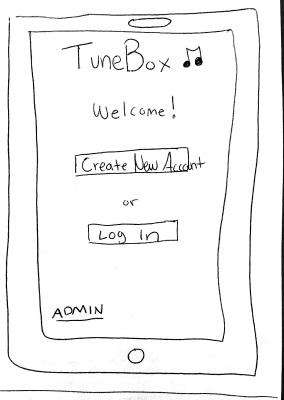 TuneBox
Welcome!
Create New Account
or
Log In
ADMIN